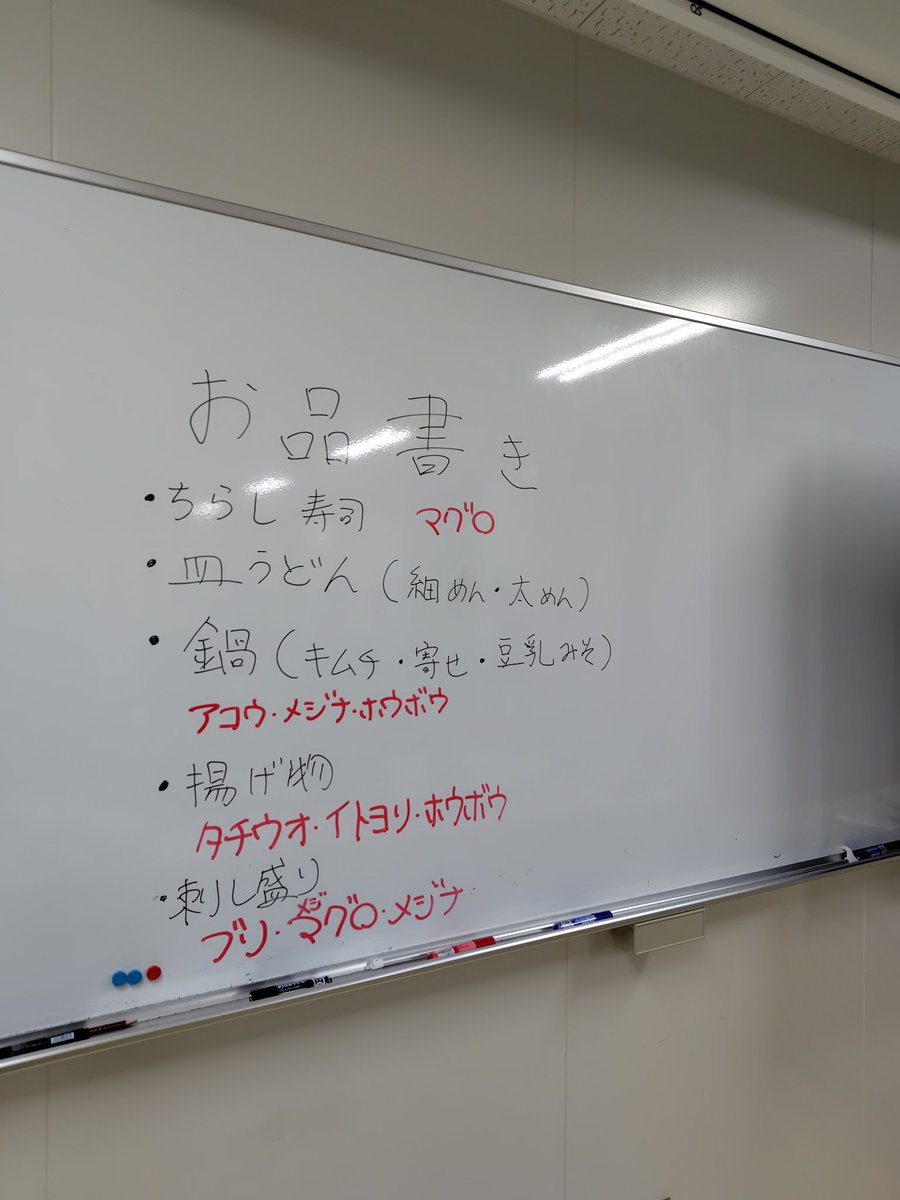 お品書き
・ちらし寿司 マグロ
・皿うどん(細めん・太めん)
・鍋(キムチ・寄せ・豆乳みそ)
アコウ・メジナ・ホウボウ
・揚げ物
タチウオ・イトヨリ・ホウボウ
・刺し盛り
メジ
ブリ・マグロ・メジナ